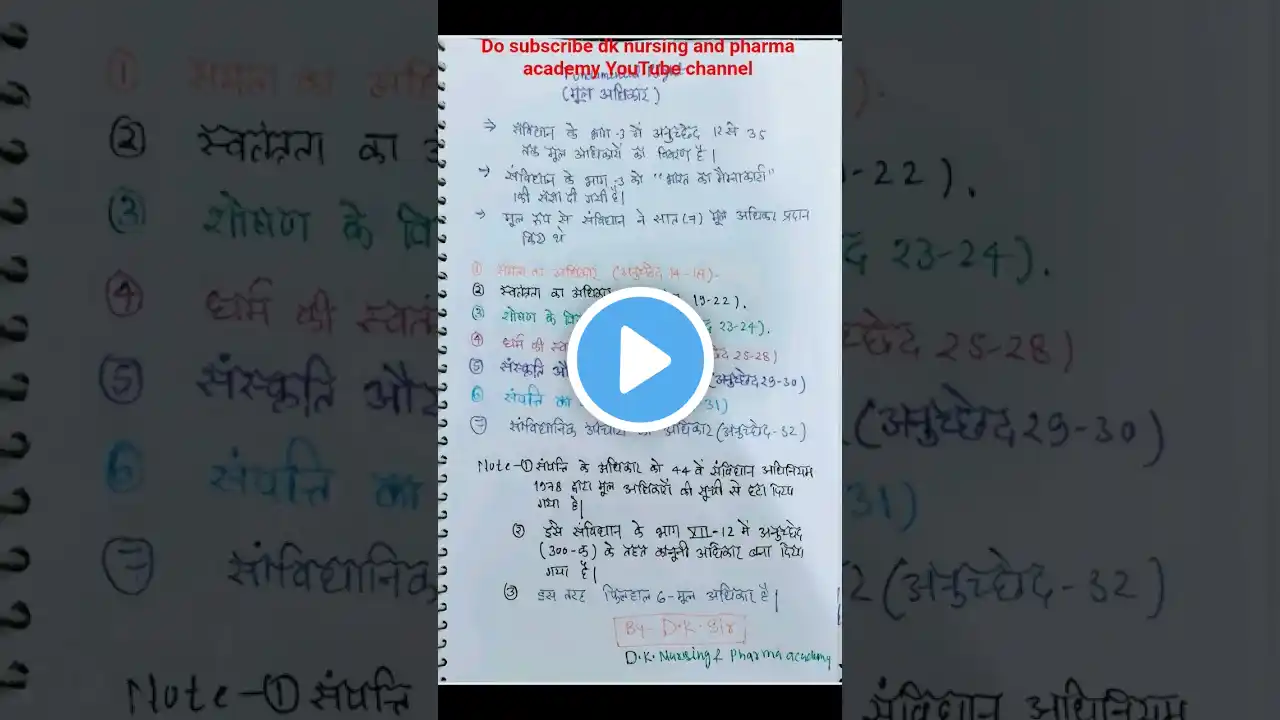 Do subscribe dk nursing and pharma
academy YouTube channel
(मूल अधिकार)
→ संविधान के भाग-3 में अनुच्छेद 12 से 35
तक मूल अधिकारों का विवरण है|
→ संविधान के भाग-3 को "भारत का मैग्नाकार्टा"
की संज्ञा दी गयी है|
→ मूल रूप से संविधान ने सात(7) मूल अधिकार प्रदान
किए थे
① समता का अधिकार (अनुच्छेद 14-18)-
② स्वतंत्रता का अधिकार 19-22).
③ शोषण के 23-24).
④ धर्म की 25-28)
⑤ संस्कृति (अनुच्छेद 29-30)
⑥ संपत्ति का 31)
⑦ सांविधानिक उपचारों का अधिकार (अनुच्छेद-32)
Note-① संपत्ति के अधिकार को 44 वें संविधान अधिनियम
1978 द्वारा मूल अधिकारों की सूची से हटा दिया
गया है|
② इसे संविधान के भाग XII-12 में अनुच्छेद
(300-क) के तहत कानूनी अधिकार बना दिया
गया है|
③ इस तरह फिलहाल 6-मूल अधिकार है|
By- D.K. Sir
D.K. Nursing & Pharma academy